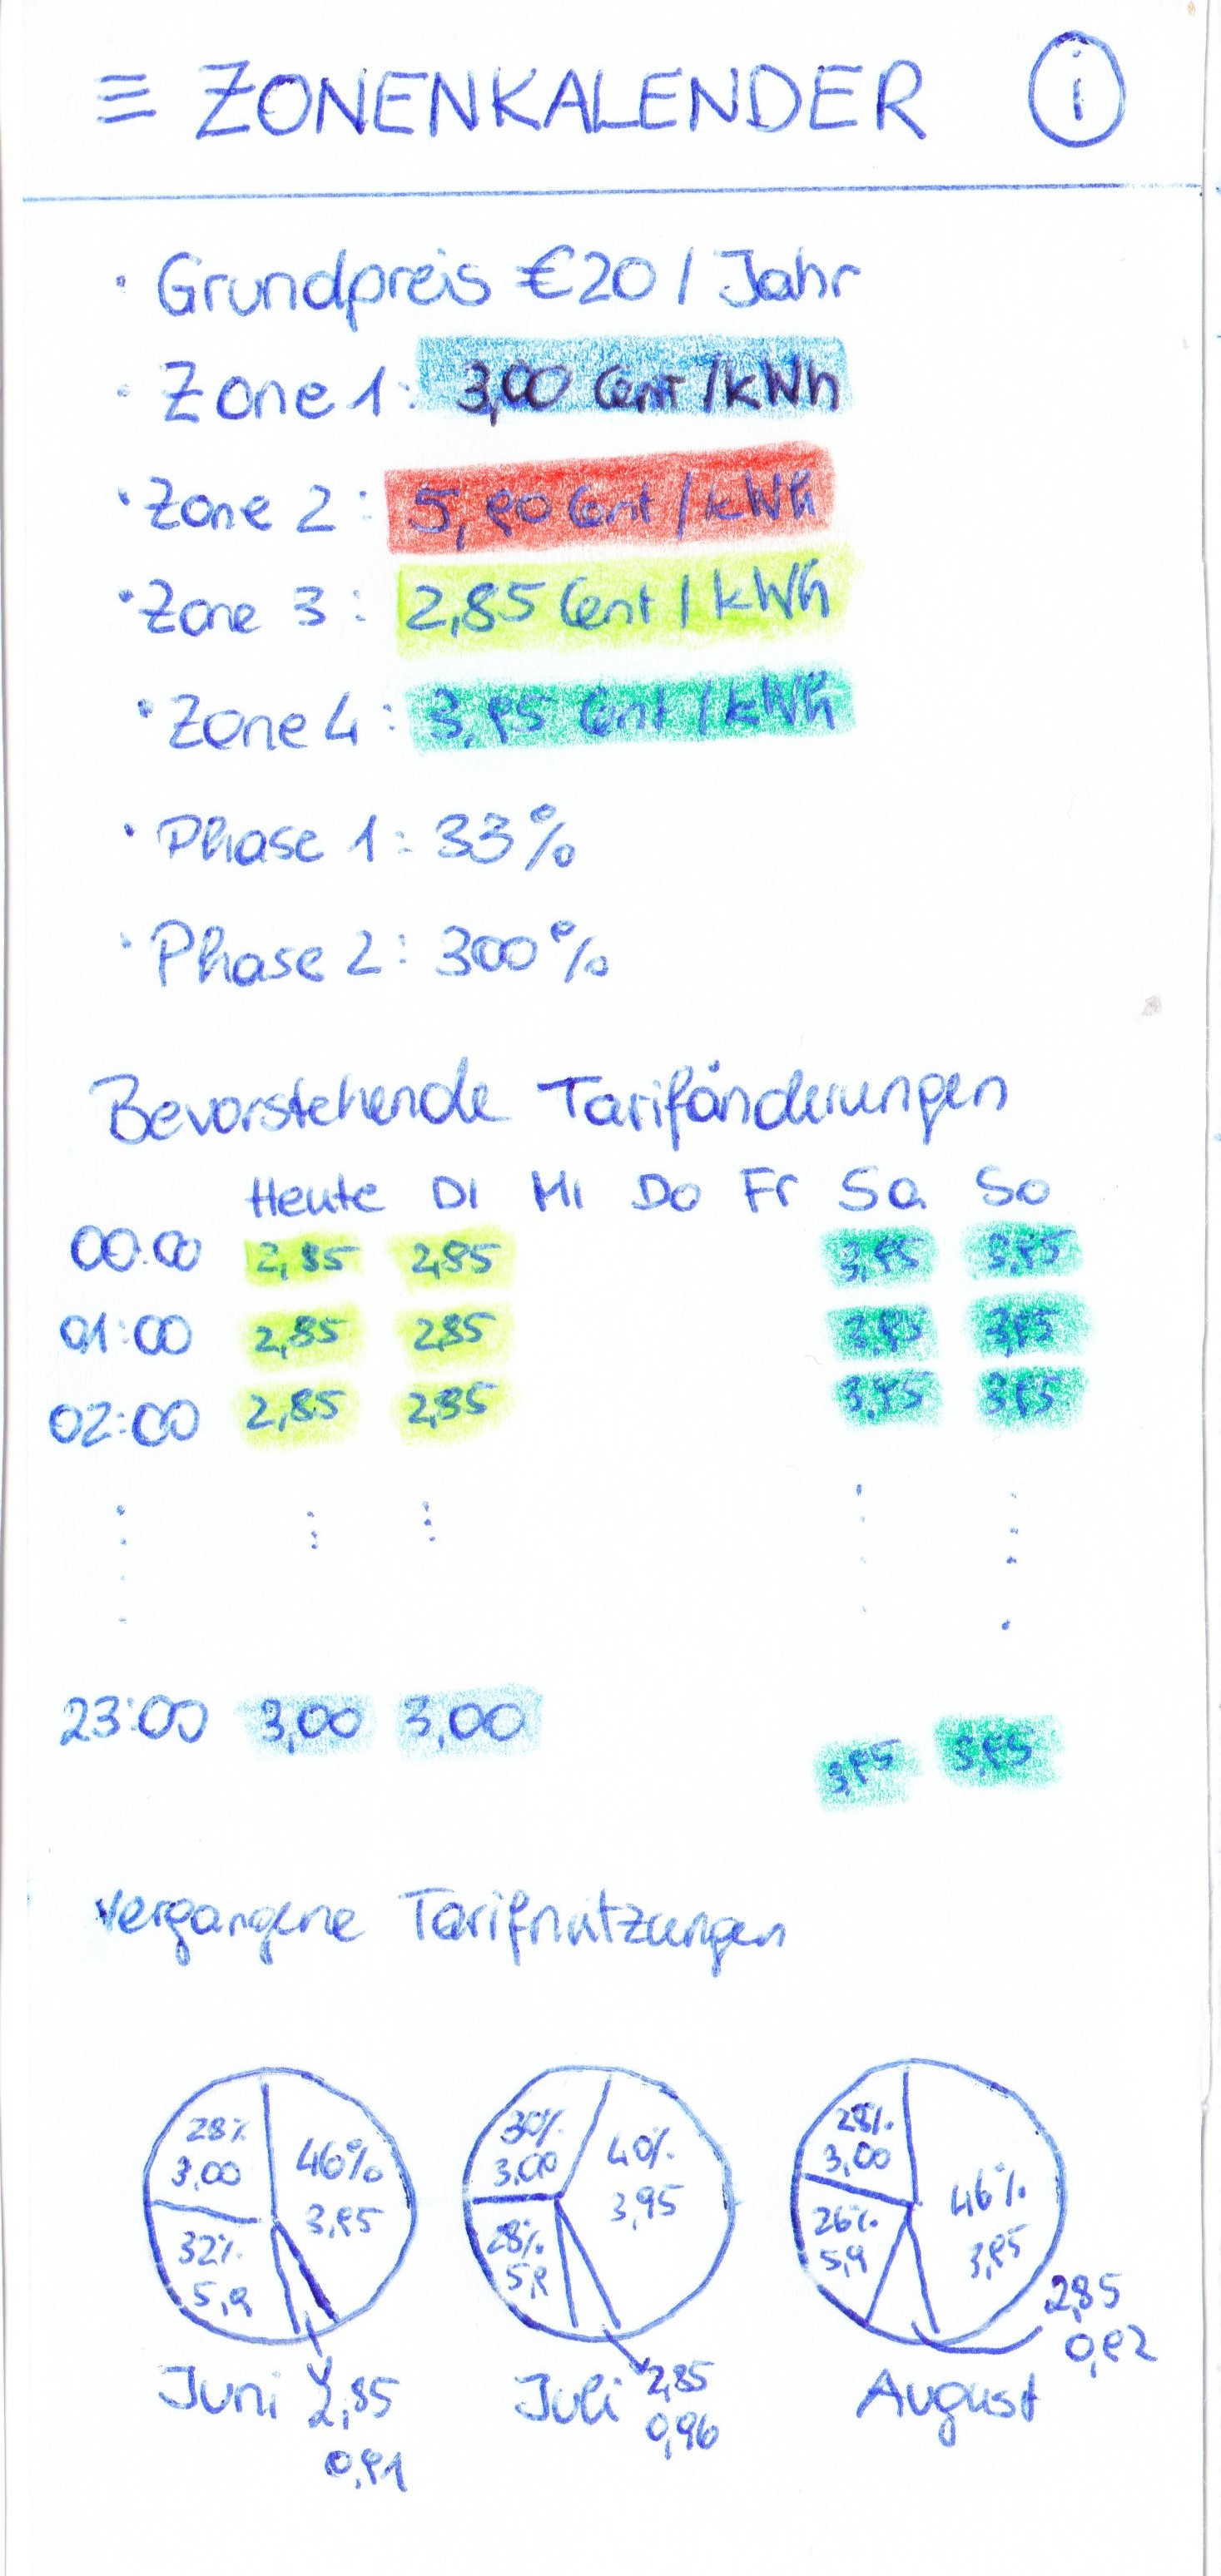 ≡ ZONENKALENDER i
· Grundpreis €20 / Jahr
· Zone 1: 3,00 Cent /kWh
· Zone 2: 5,90 Cent /kWh
· Zone 3: 2,85 Cent / kWh
· Zone 4: 3,95 Cent /kWh
· Phase 1: 33%
· Phase 2: 300%
Bevorstehende Tarifänderungen
Heute Di Mi Do Fr Sa So
00:00 2,85 2,85 3,95 3,95
01:00 2,85 2,85 3,95 3,95
02:00 2,85 2,85 3,95 3,95
23:00 3,00 3,00 3,95 3,95
Vergangene Tarifnutzungen
28% 3,00 46% 3,95 32% 5,9
Juni 2,85
0,91
30% 3,00 40% 3,95 28% 5,9
Juli 2,85
0,96
28% 3,00 46% 3,95 26% 5,9
2,85
0,92
August